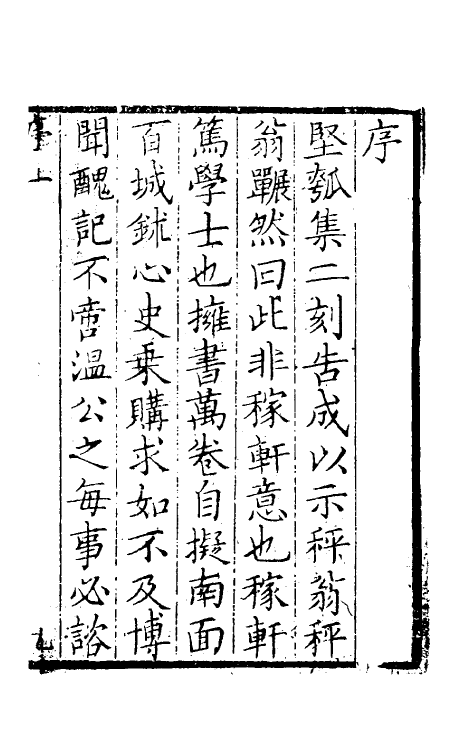 序
堅瓠集二刻告成以示秤翁秤
翁囅然曰此非稼軒意也稼軒
篤學士也擁書萬卷自擬南面
百城鉥心史乘購求如不及博
聞醜記不啻溫公之每事必諮
序上